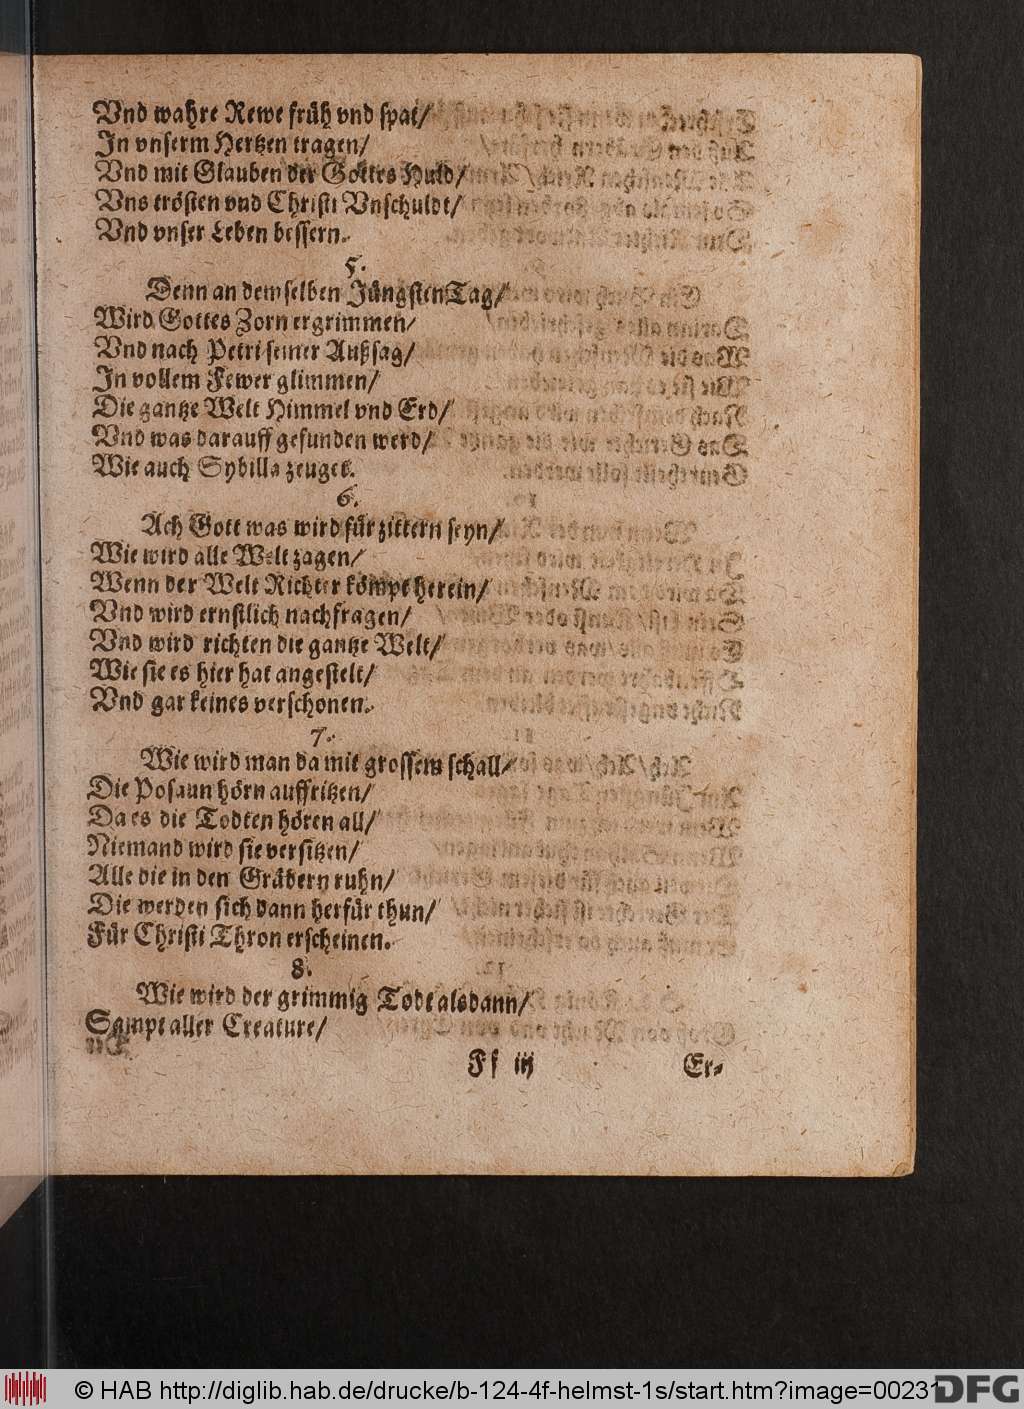 Vnd wahre Rewe früh vnd spat/
In vnserm Hertzen tragen/
Vnd mit Glauben der Gottes Huld/
Vns trösten vnd Christi Vnschuldt/
Vnd vnser Leben bessern.
5.
Denn an demselben Jüngsten Tag/
Wird Gottes Zorn ergrimmen/
Vnd nach Petri seiner Außsag/
In vollem Fewer glimmen/
Die gantze Welt Himmel vnd Erd/
Vnd was darauff gefunden werd/
Wie auch Sybilla zeuget.
6.
Ach Gott was wird für zittern seyn/
Wie wird alle Welt zagen/
Wenn der Welt Richter kömpt herein/
Vnd wird ernstlich nachfragen/
Vnd wird richten die gantze Welt/
Wie sie es hier hat angestelt/
Vnd gar keines verschonen.
7.
Wie wird man da mit grossem schall/
Die Posaun hörn auffritzen/
Da es die Todten hören all/
Niemand wird sie versitzen/
Alle die in den Gräbern ruhn/
Die werden sich dann herfür thun/
Für Christi Thron erscheinen.
8.
Wie wird der grimmig Todt alsdann/
Sampt aller Creature/
Ff iij Er-
© HAB http://diglib.hab.de/drucke/b-124-4f-helmst-1s/start.htm?image=00231
DFG